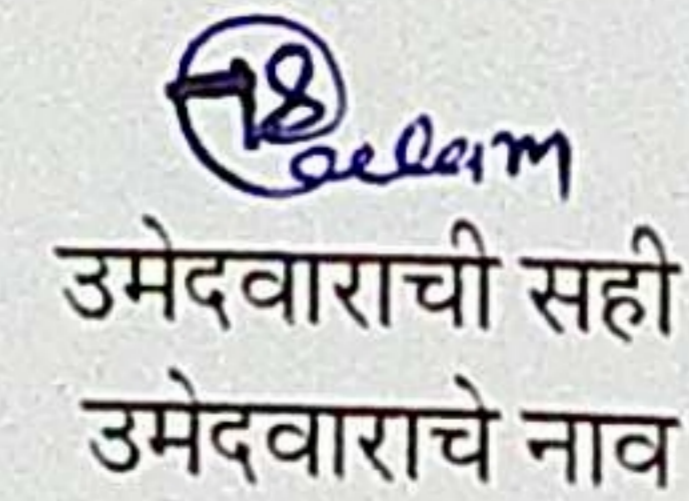 उमेदवाराची सही
उमेदवाराचे नाव